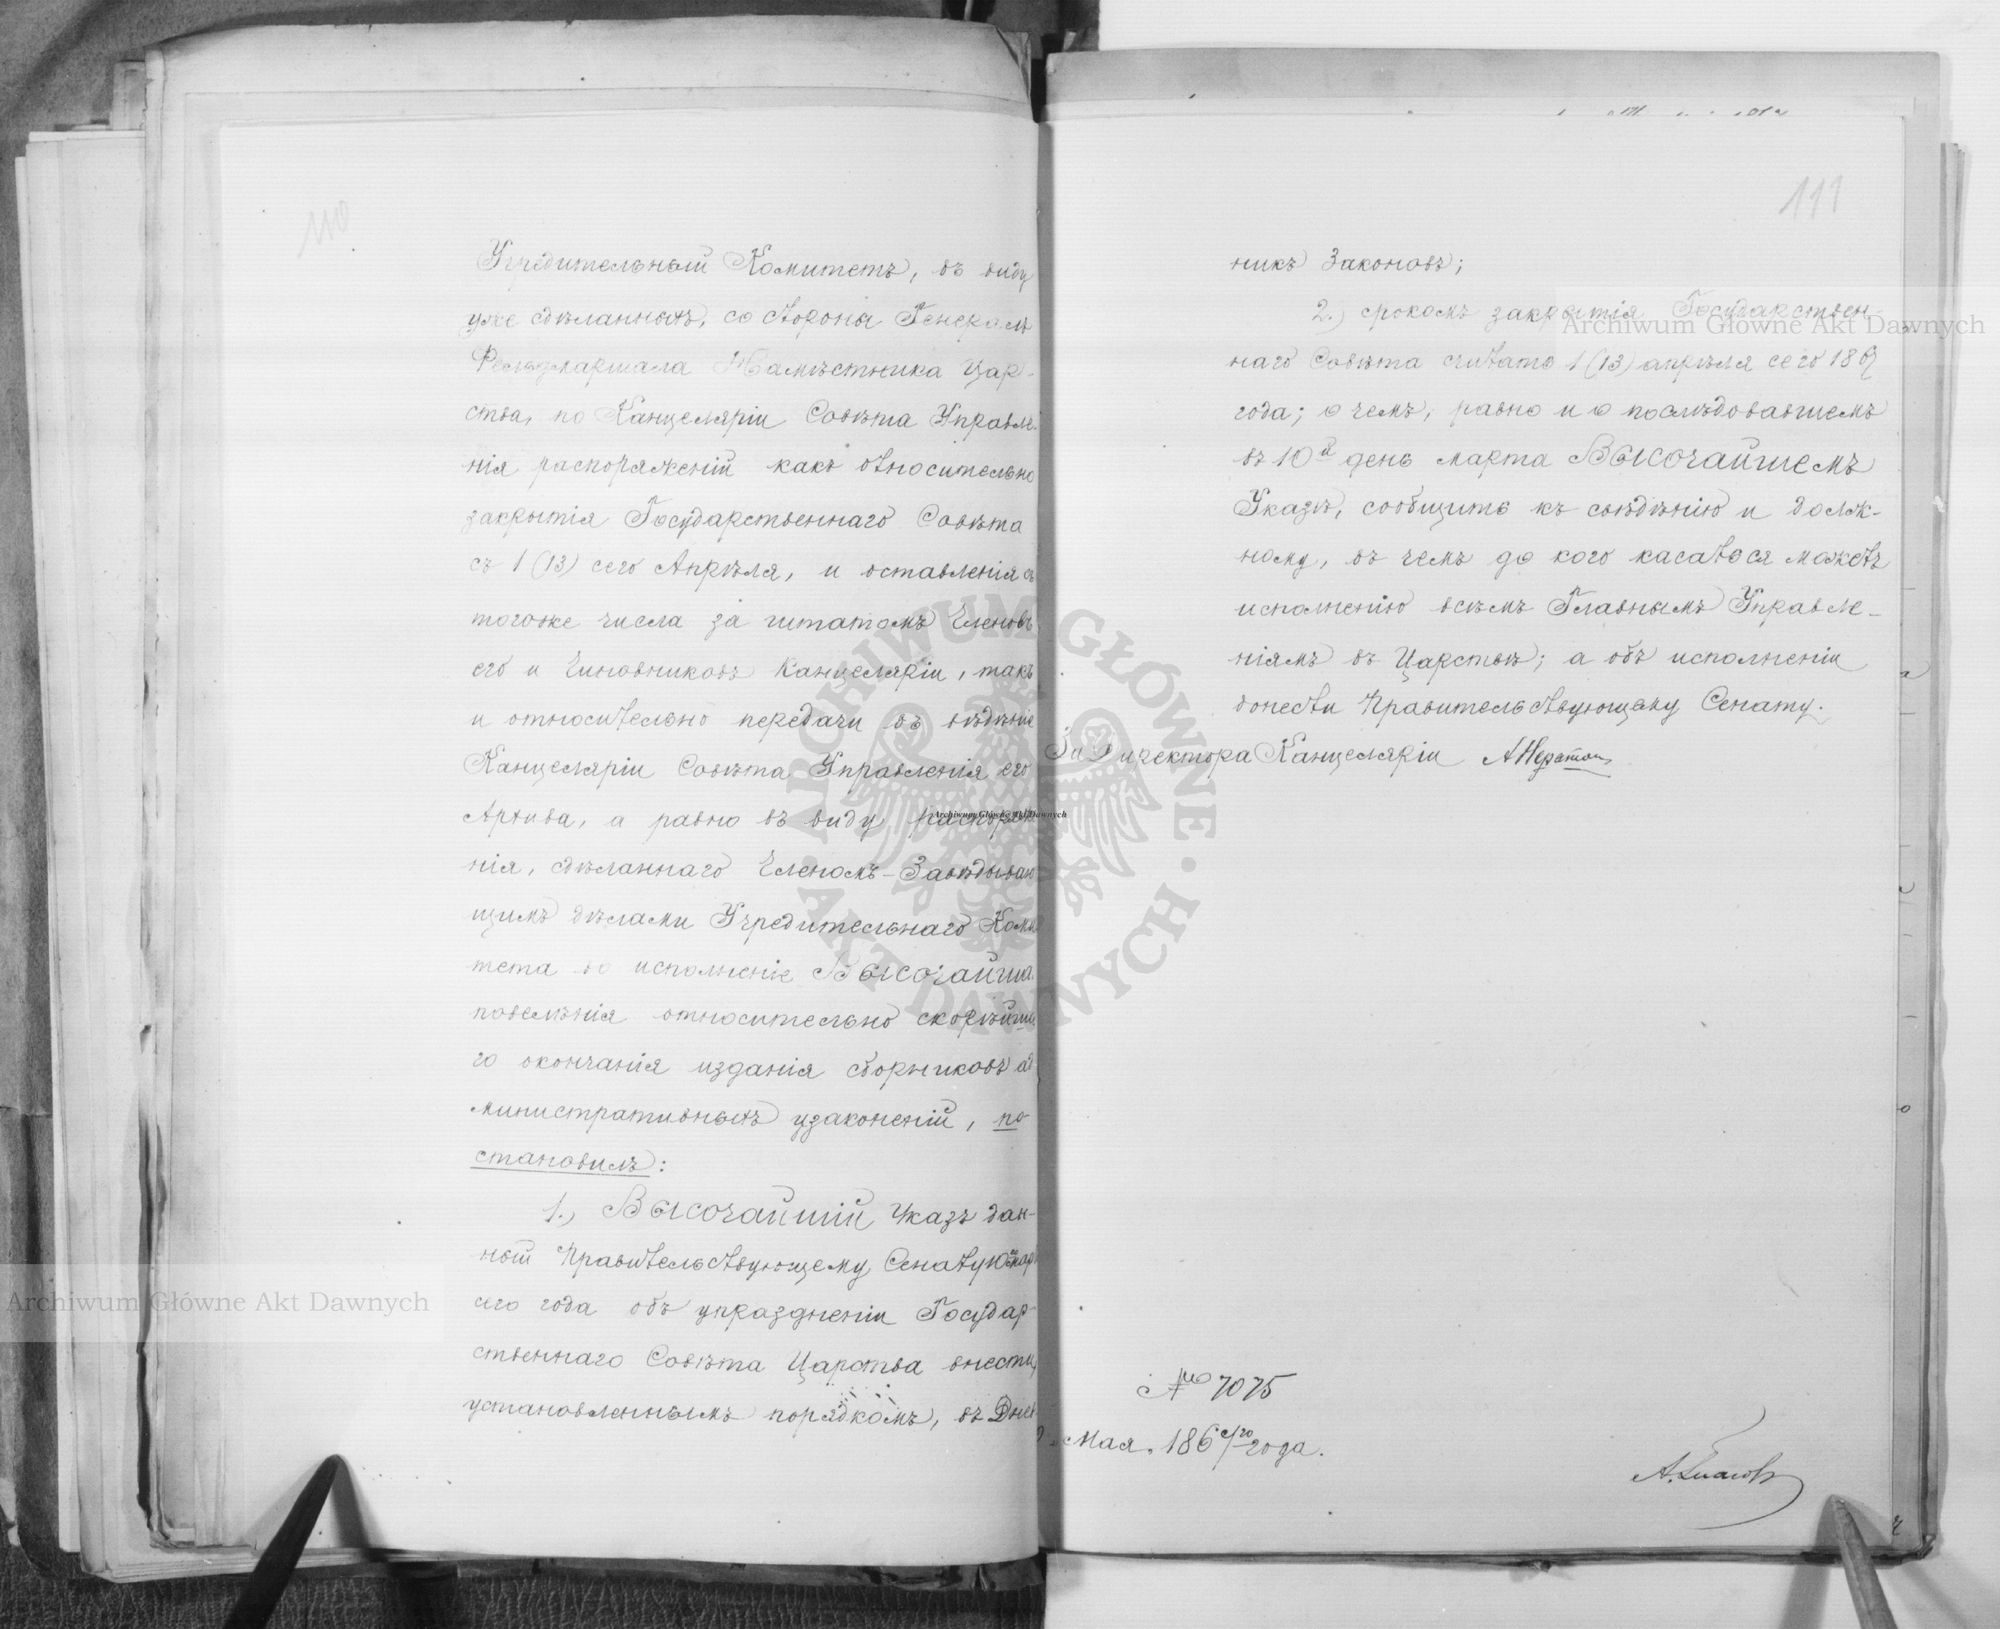 110
Учредительный Комитетъ, въ виду
уже сдѣланныхъ, со стороны Генералъ
Фельдмаршала Намѣстника Цар-
ства, по Канцеляріи Совѣта Управле-
нія распоряженій какъ относительно
закрытія Государственнаго Совѣта
съ 1 (13) сего Апрѣля, и оставленія съ
того же числа за штатомъ Членовъ
его и Чиновниковъ Канцеляріи, такъ
и относительно передачи въ вѣдѣніе
Канцеляріи Совѣта Управленія его
Архива, а равно въ виду распоряже
нія, сдѣланнаго Членомъ-Завѣдываю
щимъ дѣлами Учредительнаго Коми
тета во исполненіе ВЫСОЧАЙША
повелѣнія относительно скорѣйша
го окончанія изданія сборниковъ ад
министративныхъ узаконеній, по
становилъ:
1., ВЫСОЧАЙШІЙ Указъ дан-
ный Правительствующему Сенату 10 мар
сего года объ упраздненіи Государ-
ственнаго Совѣта Царства внести,
установленнымъ порядкомъ, въ Днев
111
никъ Законовъ;
2., срокомъ закрытія Государствен-
наго Совѣта считать 1 (13) апрѣля сего 1867
года; о чемъ, равно и о послѣдовавшемъ
въ 10й день марта ВЫСОЧАЙШЕМЪ
Указѣ, сообщить къ свѣдѣнію и долж-
ному, въ чемъ до кого касаться можетъ
исполненію всѣмъ Главнымъ Управле-
ніямъ въ Царствѣ; а объ исполненіи
донести Правительствующему Сенату.
За Директора Канцеляріи
№ 7075
Мая, 1867го года.
Archiwum Główne Akt Dawnych
Archiwum Główne Akt Dawnych
Archiwum Główne Akt Dawnych
ARCHIWUM GŁÓWNE AKT DAWNYCH